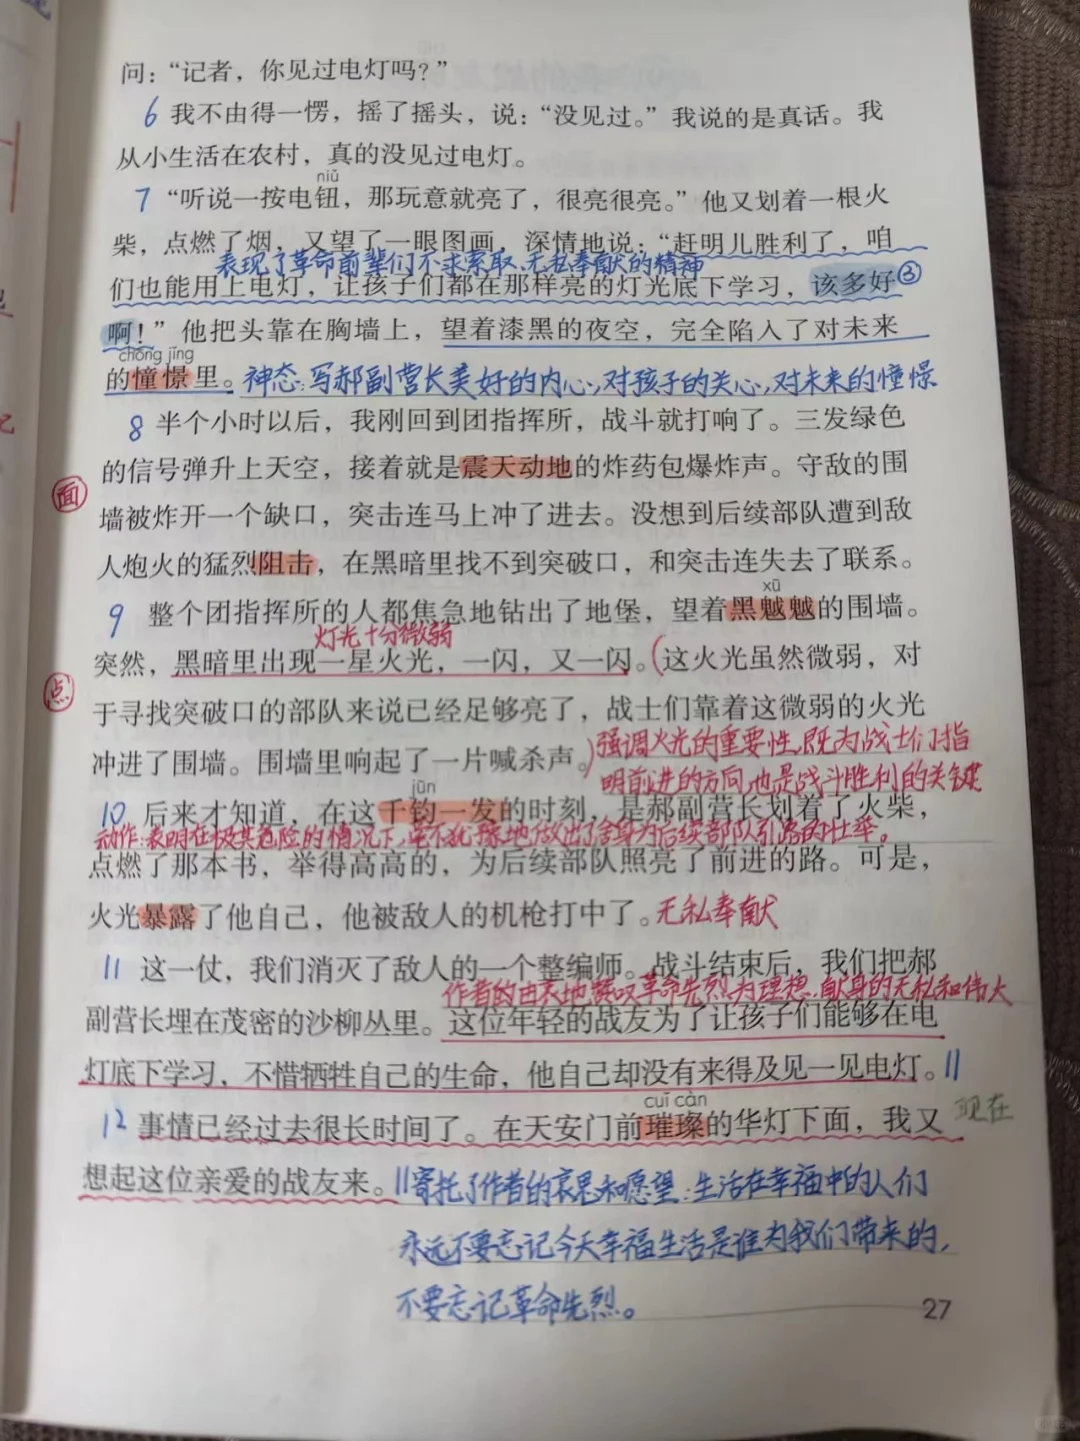 问：“记者，你见过电灯吗？”
6 我不由得一愣，摇了摇头，说：“没见过。”我说的是真话。我
从小生活在农村，真的没见过电灯。
niǔ
7 “听说一按电钮，那玩意就亮了，很亮很亮。”他又划着一根火
柴，点燃了烟，又望了一眼图画，深情地说：“赶明儿胜利了，咱
表现了革命前辈们不求索取、无私奉献的精神
们也能用上电灯，让孩子们都在那样亮的灯光底下学习，该多好 ③
啊！”他把头靠在胸墙上，望着漆黑的夜空，完全陷入了对未来
chōng jǐng
的憧憬里。神态：写郝副营长美好的内心，对孩子的关心，对未来的憧憬
8 半个小时以后，我刚回到团指挥所，战斗就打响了。三发绿色
的信号弹升上天空，接着就是震天动地的炸药包爆炸声。守敌的围
面
墙被炸开一个缺口，突击连马上冲了进去。没想到后续部队遭到敌
人炮火的猛烈阻击，在黑暗里找不到突破口，和突击连失去了联系。
xū
9 整个团指挥所的人都焦急地钻出了地堡，望着黑魆魆的围墙。
灯光十分微弱
突然，黑暗里出现一星火光，一闪，又一闪。（这火光虽然微弱，对
点
于寻找突破口的部队来说已经足够亮了，战士们靠着这微弱的火光
冲进了围墙。围墙里响起了一片喊杀声。）强调火光的重要性，既为战士们指
明前进的方向，也是战斗胜利的关键
jūn
10 后来才知道，在这千钧一发的时刻，是郝副营长划着了火柴，
动作：表明在极其危险的情况下，毫不犹豫地做出了舍身为后续部队引路的壮举。
点燃了那本书，举得高高的，为后续部队照亮了前进的路。可是，
火光暴露了他自己，他被敌人的机枪打中了。无私奉献
11 这一仗，我们消灭了敌人的一个整编师。战斗结束后，我们把郝
作者的由衷地赞叹革命先烈为理想献身的无私和伟大
副营长埋在茂密的沙柳丛里。这位年轻的战友为了让孩子们能够在电
灯底下学习，不惜牺牲自己的生命，他自己却没有来得及见一见电灯。||
cuǐ càn
12 事情已经过去很长时间了。在天安门前璀璨的华灯下面，我又 现在
想起这位亲爱的战友来。||寄托了作者的哀思和愿望：生活在幸福中的人们
永远不要忘记今天幸福生活是谁为我们带来的，
不要忘记革命先烈。
27